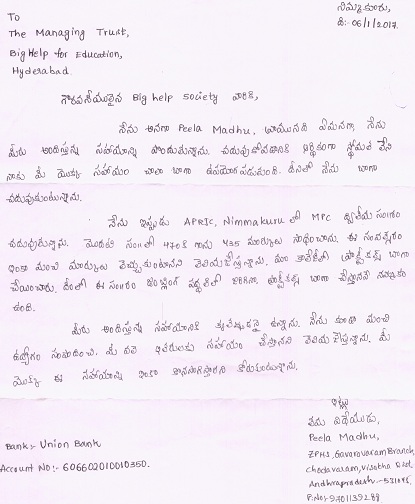 నిమ్మకూరు,
ది:-06/1/2017.
To
The Managing Trust,
Big Help for Education,
Hyderabad.
గౌరవనీయులైన Big help society వారికి,
నేను అనగా Peela Madhu, వ్రాయునది ఏమనగా, నేను
మీరు అందిస్తున్న సహాయాన్ని పొందుతున్నాను. చదువుకోవడానికి ఆర్థికంగా స్థోమత లేని
నాకు మీ యొక్క సహాయం చాలా బాగా ఉపయోగపడుతుంది. దీనితో నేను బాగా
చదువుకుంటున్నాను.
నేను ఇప్పుడు APRJC, Nimmakuru లో MPC ద్వితీయ సంవత్సరం
చదువుతున్నాను. మొదటి సం॥లో 470కి గాను 435 మార్కులు సాధించాను. ఈ సంవత్సరం
ఇంకా మంచి మార్కులు తెచ్చుకుంటానని తెలియజేస్తున్నాను. మా కాలేజీలో ప్రాక్టికల్స్ బాగా
చేయించారు. దీంతో ఈ సం॥రం జంబ్లింగ్ పద్ధతిలో జరిగినా ప్రాక్టికల్స్ బాగా చేస్తాననే నమ్మకం
ఉంది.
మీరు అందిస్తున్న సహాయానికి కృతజ్ఞుడనై ఉన్నాను. నేను కూడా మంచి
ఉద్యోగం సంపాదించి, మీ వలె ఇతరులకు సహాయం చేస్తానని తెలియజేస్తున్నాను. మీ
యొక్క ఈ సహాయాన్ని ఇంకా కొనసాగిస్తారని కోరుకుంటున్నాను.
ఇట్లు
తమ విధేయుడు,
Peela Madhu,
ZPHS, Gavaravaram Branch,
Chodavaram, Visakha Dist,
Andhrapradesh -
P.No:- 9701139288
Bank:- Union Bank
Account No:- 606602010010350.